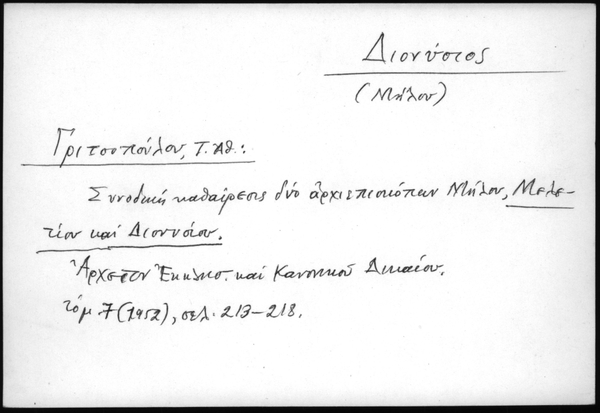 Διονύσιος
(Μήλου)
Γριτσοπούλου, Τ. Αθ.:
Συνοδική καθαίρεσις δύο ἀρχιεπισκόπων Μήλου, Μελε-
τίου καὶ Διονυσίου.
Ἀρχεῖον Ἐκκλησ. καὶ Κανονικοῦ Δικαίου.
τόμ. 7 (1952), σελ. 213-218.